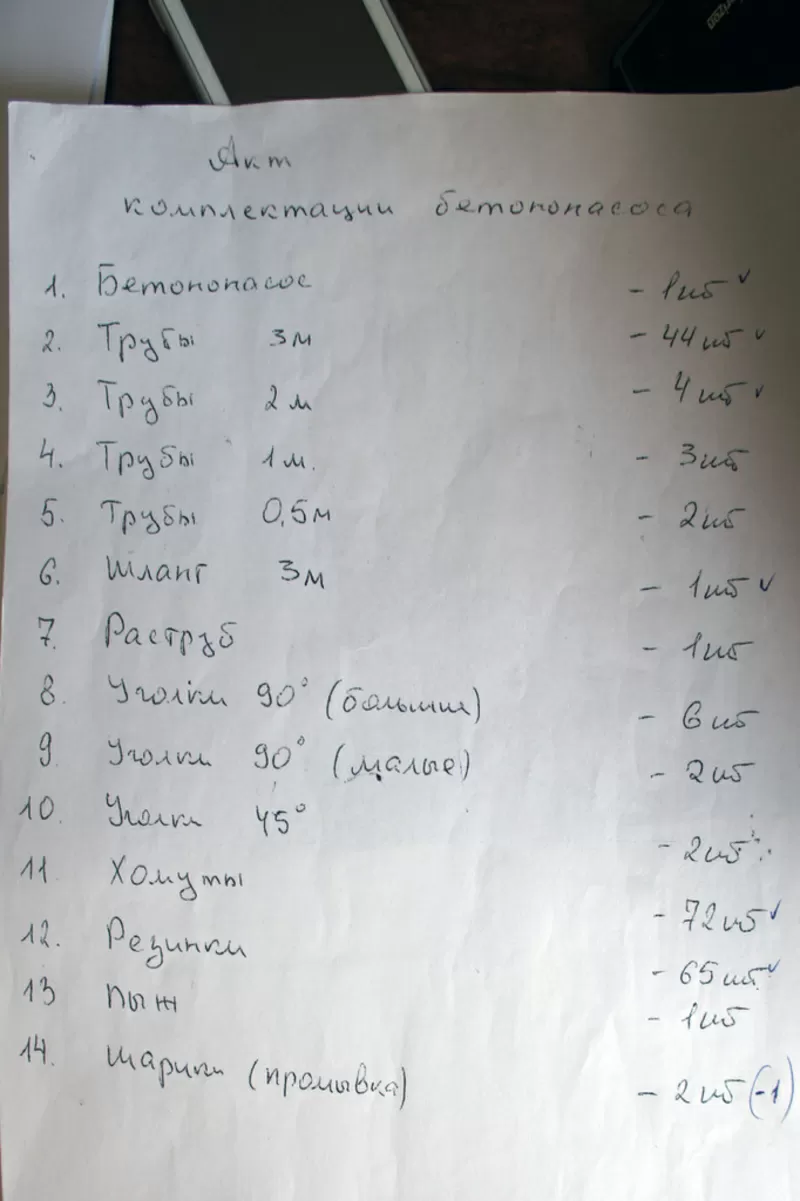 Акт
комплектации бетононасоса
1. Бетононасос - 1шт ✓
2. Трубы 3м - 44шт ✓
3. Трубы 2м - 4шт ✓
4. Трубы 1м. - 3шт
5. Трубы 0,5м - 2шт
6. Шланг 3м - 1шт ✓
7. Раструб - 1шт
8. Уголки 90° (большие) - 6шт
9. Уголки 90° (малые) - 2шт
10. Уголки 45° - 2шт
11. Хомуты - 72шт ✓
12. Резинки - 65шт ✓
13 Пыж - 1шт
14. Шарики (промывка) - 2шт (-1)